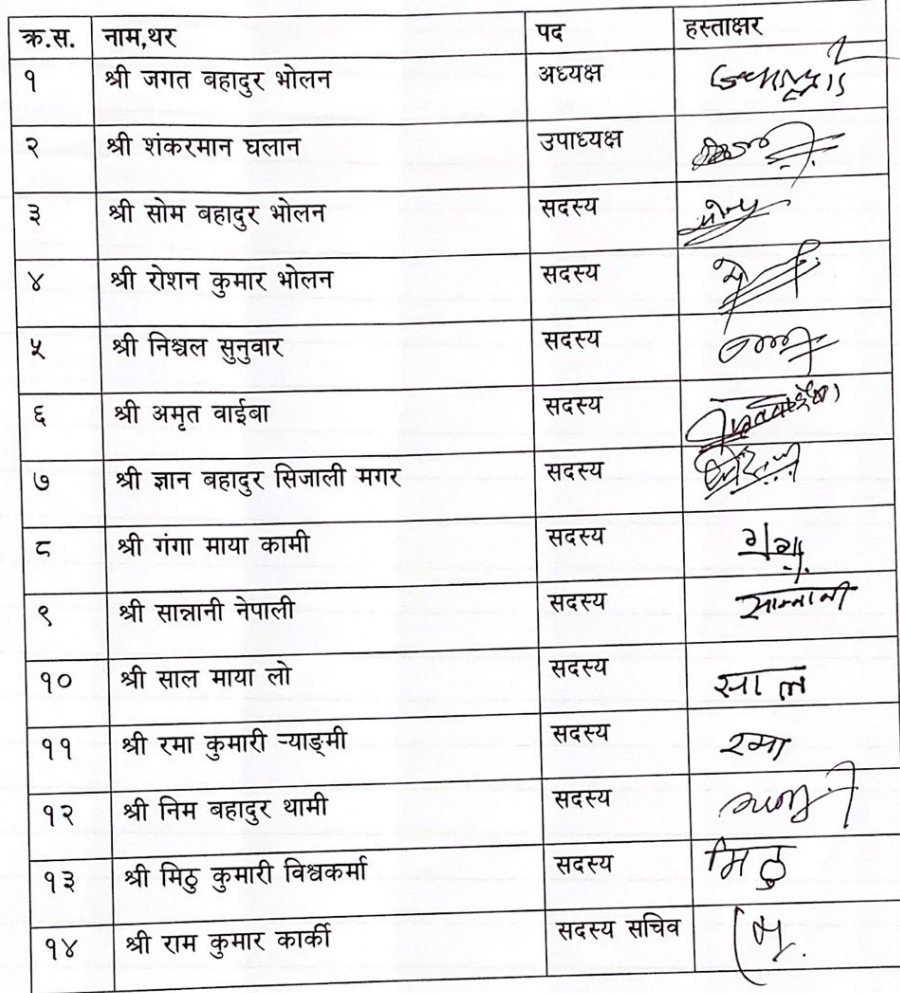 क्र.स. नाम,थर पद हस्ताक्षर
१ श्री जगत बहादुर भोलन अध्यक्ष
२ श्री शंकरमान घलान उपाध्यक्ष
३ श्री सोम बहादुर भोलन सदस्य
४ श्री रोशन कुमार भोलन सदस्य
५ श्री निश्चल सुनुवार सदस्य
६ श्री अमृत वाईबा सदस्य
७ श्री ज्ञान बहादुर सिजाली मगर सदस्य
८ श्री गंगा माया कामी सदस्य
९ श्री सान्नानी नेपाली सदस्य सान्नानी
१० श्री साल माया लो सदस्य साल
११ श्री रमा कुमारी र्‍याङ्मी सदस्य रमा
१२ श्री निम बहादुर थामी सदस्य
१३ श्री मिठु कुमारी विश्वकर्मा सदस्य मिठु
१४ श्री राम कुमार कार्की सदस्य सचिव